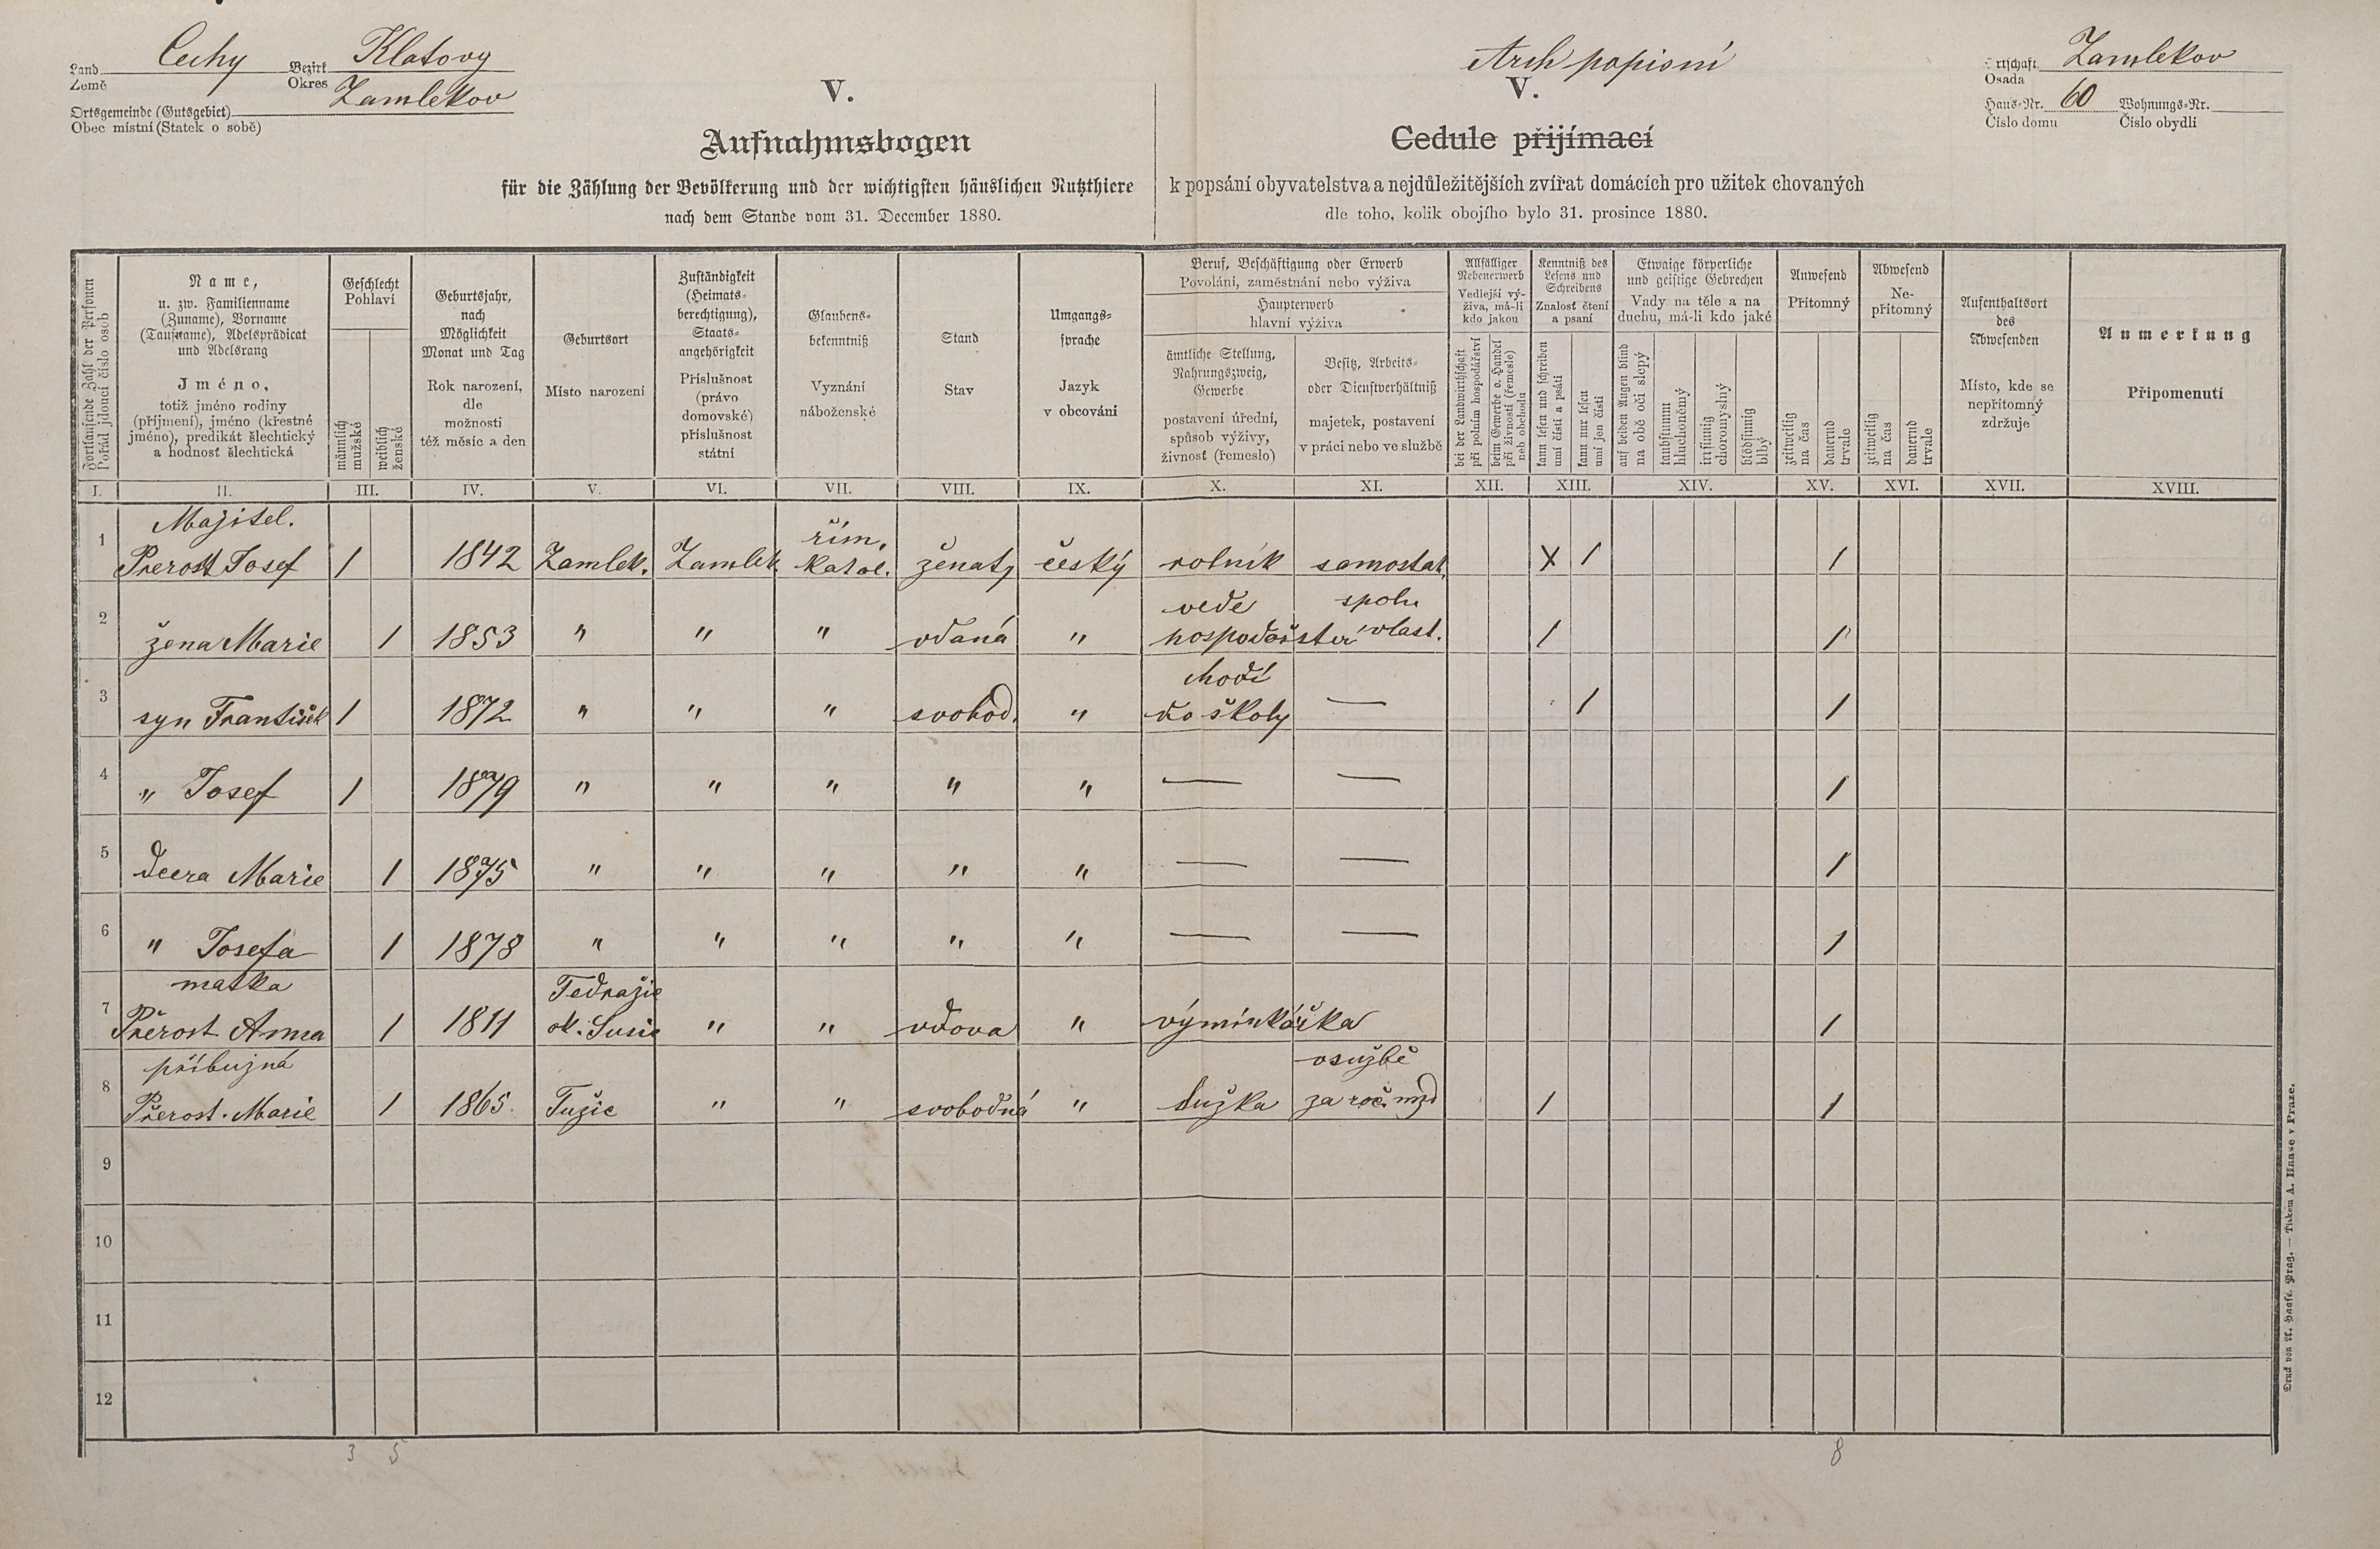 Land Země Čechy Bezirk Okres Klatovy
Ortsgemeinde (Gutsgebiet) Obec místní (Statek o sobě) Zamlekov
V.
Aufnahmsbogen
für die Zählung der Bevölkerung und der wichtigsten häuslichen Nutzthiere
nach dem Stande vom 31. December 1880.
Arch popisní
V.
Cedule přijímací
k popsání obyvatelstva a nejdůležitějších zvířat domácích pro užitek chovaných
dle toho, kolik obojího bylo 31. prosince 1880.
Ortschaft Osada Zamlekov
Haus-Nr. Číslo domu 60 Wohnungs-Nr. Číslo obydlí
Fortlaufende Zahl der Personen
Pořád jdoucí číslo osob
Name,
u. zw. Familienname
(Zuname), Vorname
(Taufname), Adelsprädicat
und Adelsrang
Jméno,
totiž jméno rodiny
(příjmení), jméno (křestné
jméno), predikát šlechtický
a hodnosť šlechtická
Geschlecht
Pohlaví
männlich
mužské
weiblich
ženské
Geburtsjahr,
nach
Möglichkeit
Monat und Tag
Rok narození,
dle
možnosti
též měsíc a den
Geburtsort
Místo narození
Zuständigkeit
(Heimats-
berechtigung),
Staats-
angehörigkeit
Příslušnost
(právo
domovské)
příslušnost
státní
Glaubens-
bekenntniß
Vyznání
náboženské
Stand
Stav
Umgangs-
sprache
Jazyk
v obcování
Beruf, Beschäftigung oder Erwerb
Povolání, zaměstnání nebo výživa
Haupterwerb
hlavní výživa
ämtliche Stellung,
Nahrungszweig,
Gewerbe
postavení úřední,
spůsob výživy,
živnosť (řemeslo)
Besitz, Arbeits-
oder Dienstverhältniß
majetek, postavení
v práci nebo ve službě
Allfälliger
Nebenerwerb
Vedlejší vý-
živa, má-li
kdo jakou
bei der Landwirthschaft
při polním hospodářství
beim Gewerbe o. Handel
při živnosti (řemesle)
neb obchodu
Kenntniß des
Lesens und
Schreibens
Znalosť čtení
a psaní
kann lesen und schreiben
umí čísti a psáti
kann nur lesen
umí jen čísti
Etwaige körperliche
und geistige Gebrechen
Vady na těle a na
duchu, má-li kdo jaké
auf beiden Augen blind
na obě oči slepý
taubstumm
hluchoněmý
irrsinnig
choromyslný
blödsinnig
blbý
Anwesend
Přítomný
zeitweilig
na čas
dauernd
trvale
Abwesend
Ne-
přítomný
zeitweilig
na čas
dauernd
trvale
Aufenthaltsort
des
Abwesenden
Místo, kde se
nepřítomný
zdržuje
Anmerkung
Připomenutí
I. II. III. IV. V. VI. VII. VIII. IX. X. XI. XII. XIII. XIV. XV. XVI. XVII. XVIII.
Majitel. řím.
1 Přerost Josef 1 1842 Zamlek. Zamlek. katol. ženatý český rolník samostat. X 1 1
vede spolu
2 žena Marie 1 1853 " " " vdaná " hospodářství vlast. 1 1
chodí
3 syn František 1 1872 " " " svobod. " do školy — 1 1
4 " Josef 1 1879 " " " " " — — 1
5 dcera Marie 1 1875 " " " " " — — 1
6 " Josefa 1 1878 " " " " " — — 1
matka Tedražic
7 Přerost Anna 1 1811 ok. Sušic " " vdova " výminkářka 1
příbuzná v službě
8 Přerost. Marie 1 1865. Tužic " " svobodná " služka za roč. mzd 1 1
9
10
11
12
3 5 8
Druck von A. Haase, Prag. — Tiskem A. Haase v Praze.